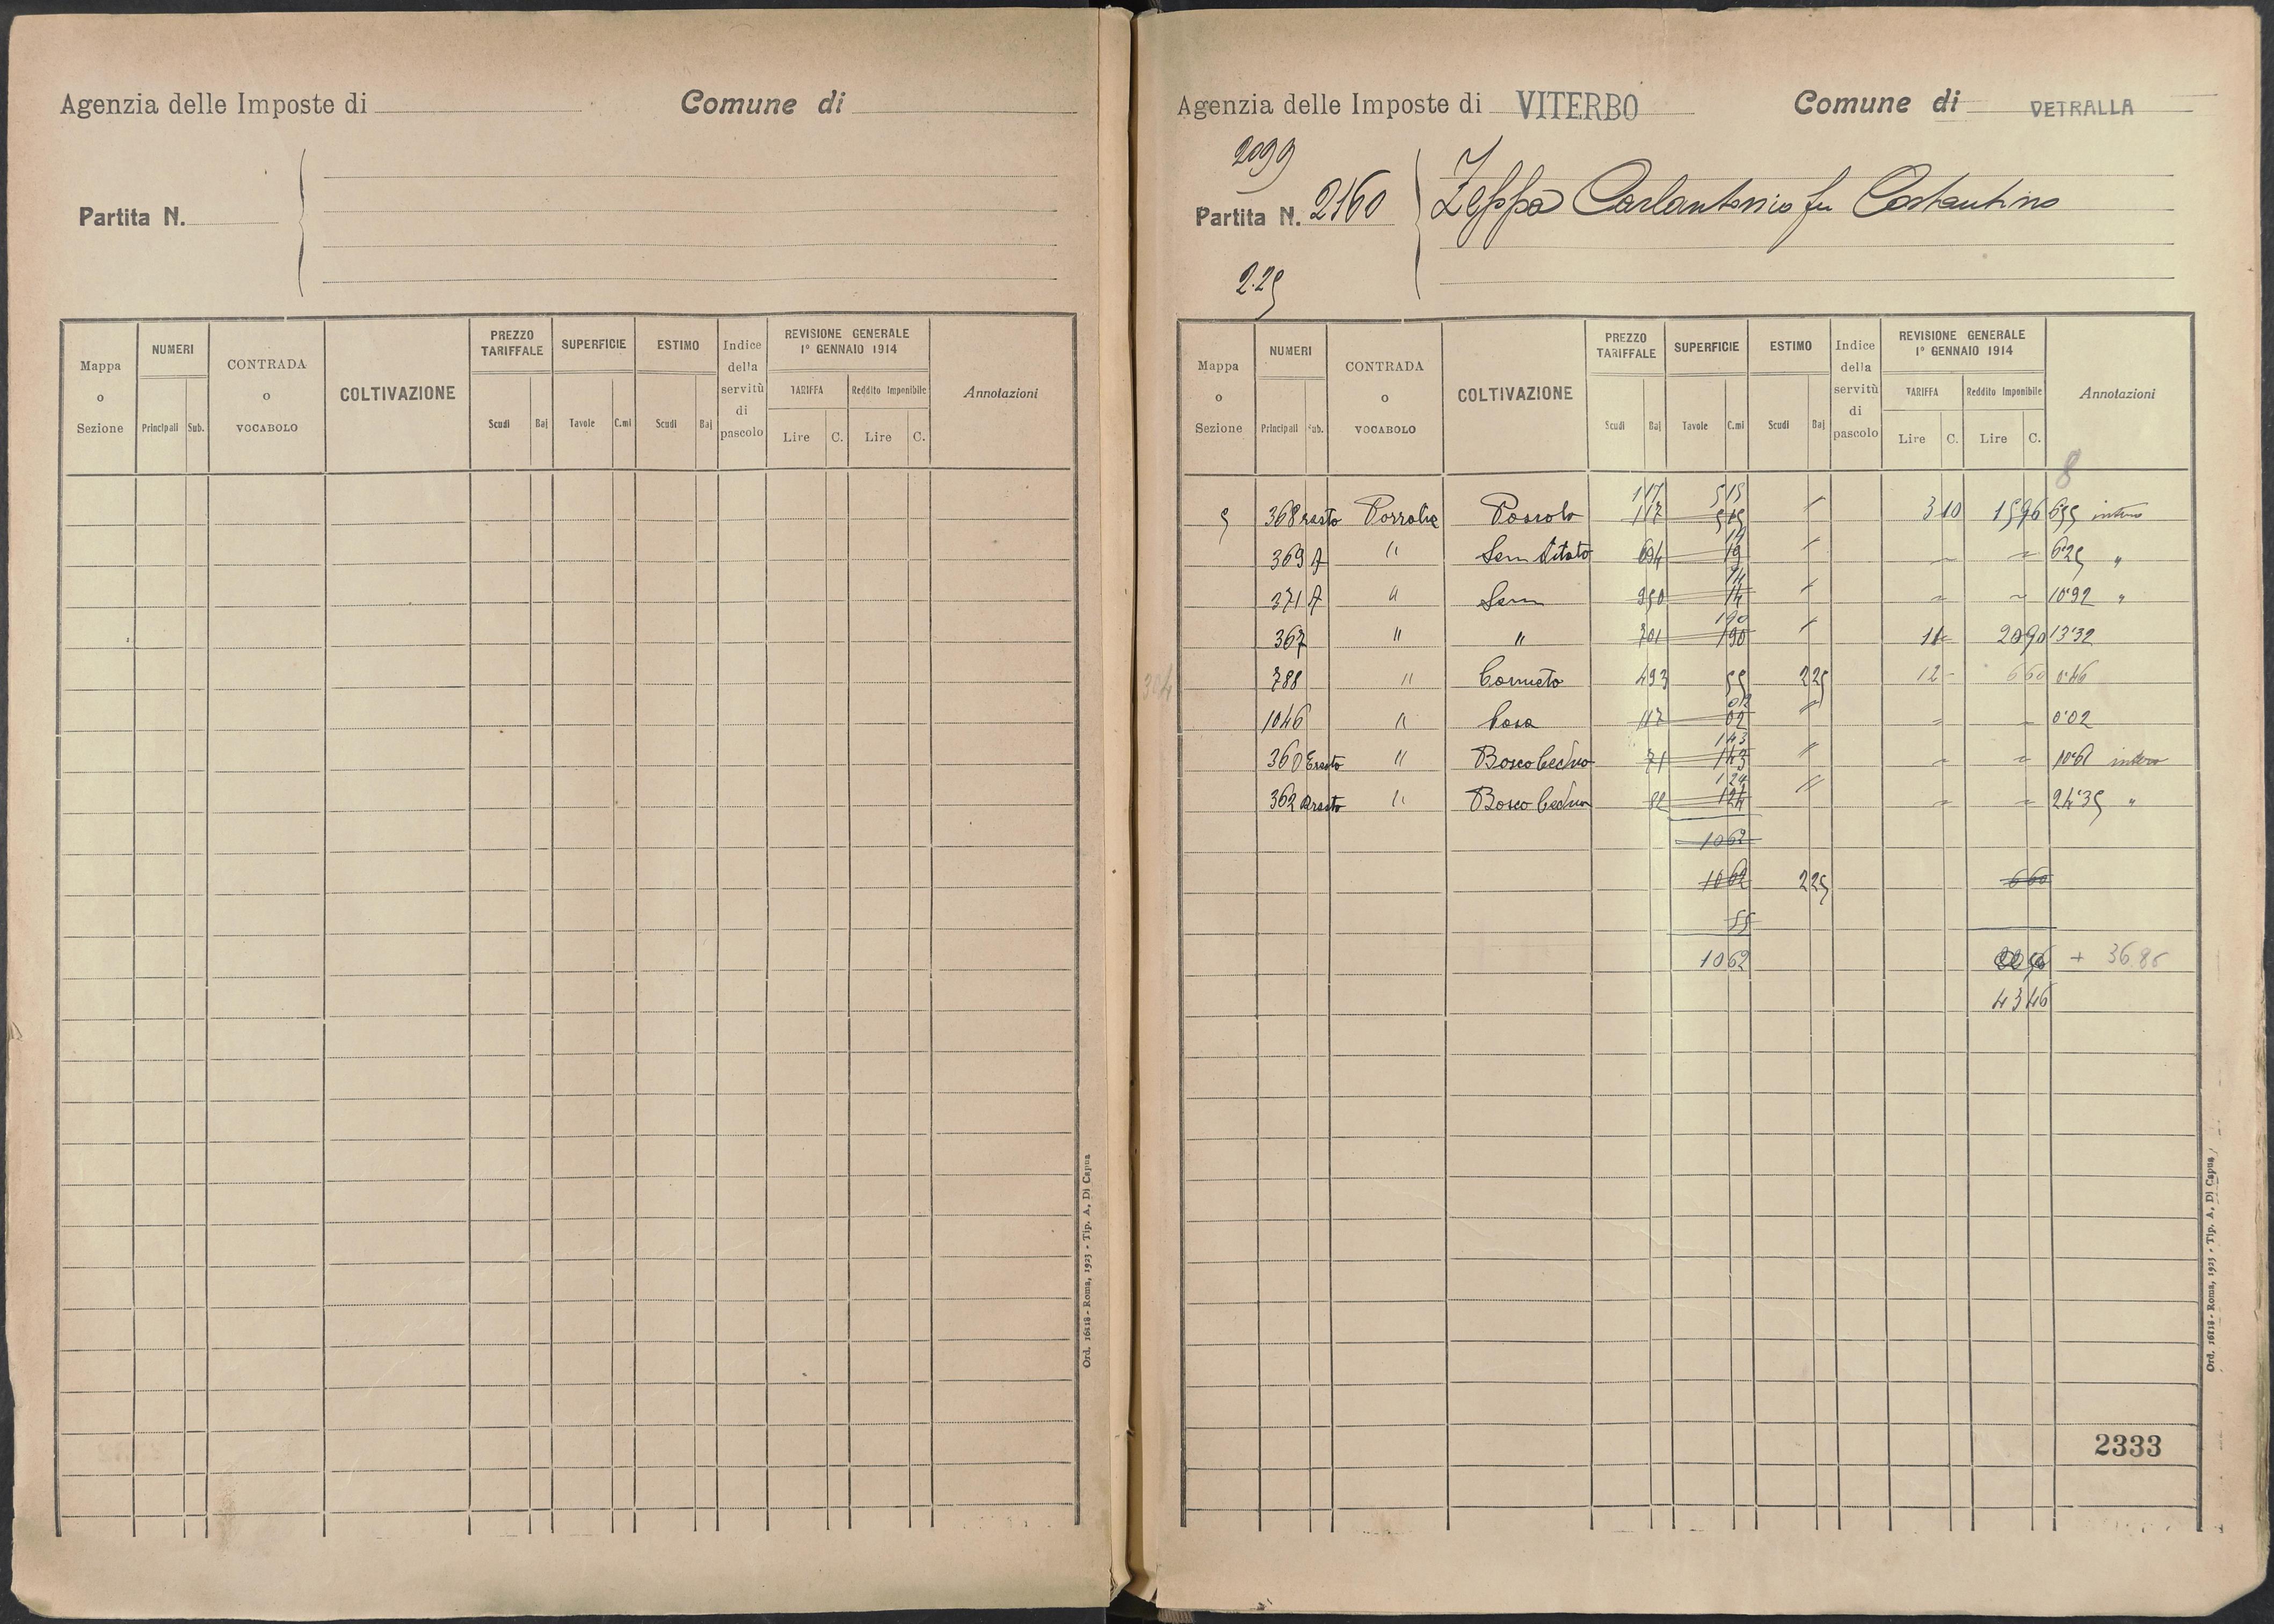 Agenzia delle Imposte di
Comune di
Partita N.
Mappa o Sezione
NUMERI
Principali Sub.
CONTRADA o VOCABOLO
COLTIVAZIONE
PREZZO TARIFFALE
Scudi Baj
SUPERFICIE
Tavole C.mi
ESTIMO
Scudi Baj
Indice della servitù di pascolo
REVISIONE GENERALE
1° GENNAIO 1914
TARIFFA
Reddito Imponibile
Lire C. Lire C.
Annotazioni
Ord. 16118 - Roma, 1923 - Tip. A. Di Capua
Agenzia delle Imposte di VITERBO
Comune di VETRALLA
2099
Partita N. 2160 Zeppa Carlantonio fu Costantino
2.25
Mappa o Sezione
NUMERI
Principali Sub.
CONTRADA o VOCABOLO
COLTIVAZIONE
PREZZO TARIFFALE
Scudi Baj
SUPERFICIE
Tavole C.mi
ESTIMO
Scudi Baj
Indice della servitù di pascolo
REVISIONE GENERALE
1° GENNAIO 1914
TARIFFA
Reddito Imponibile
Lire C. Lire C.
Annotazioni
8
117 515
5 368 resto 117 515 3 10 15 96 655 intero
19
369 A " Sem Vitato 694 19 6'25 "
14
371 A " Sem 950 14 10'92 "
190
367 " " 701 190 11 - 20 90 13'32
304 788 " Canneto 493 55 2 25 12 - 6 60 0'46
02
1046 " Casa 117 02 0'02
143
360 E resto " Bosco Ceduo 71 143 10'61 intero
124
362 resto " Bosco Ceduo 82 124 24'35 "
10 62
10 62 2 25 6 60
55
10 62 + 36.86
43 46
2333
Ord. 16118 - Roma, 1923 - Tip. A. Di Capua